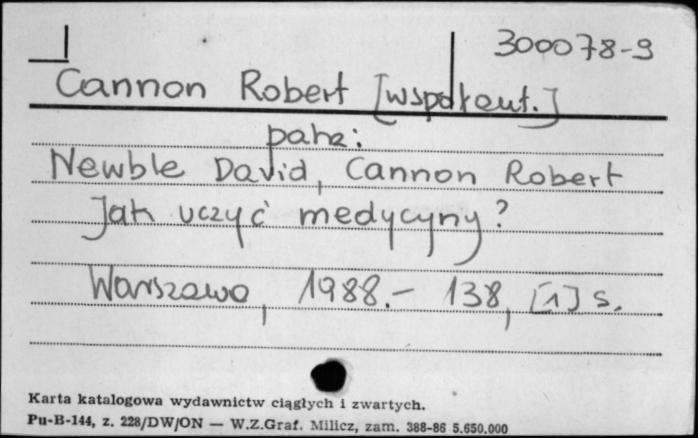 300078-9
Cannon Robert [współaut.]
patrz:
Newble David, Cannon Robert
Jak uczyć medycyny?
Warszawa, 1988.- 138, [1] s.
Karta katalogowa wydawnictw ciągłych i zwartych.
Pu-B-144, z. 228/DW/ON — W.Z.Graf. Milicz, zam. 388-86 5.650.000